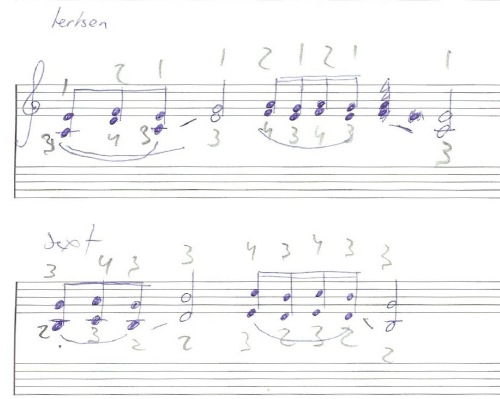 tertsen
1 2 1 1 2 1 2 1 1
3 4 3 3 4 3 4 3 3
sext
3 4 3 3 4 3 4 3 3
2 3 2 2 3 2 3 2 2